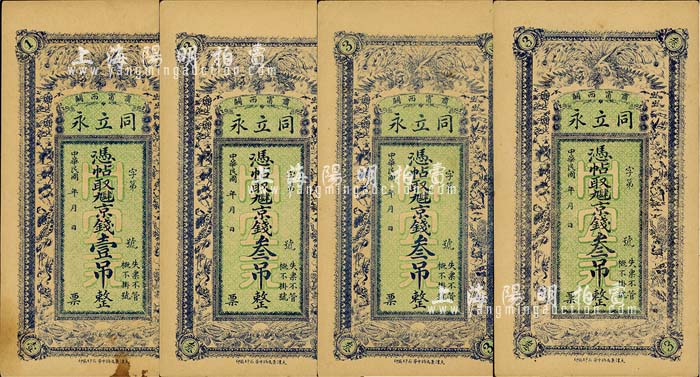 上海陽明拍賣
www.yangmingauction.com
上海陽明拍賣
www.yangmingauction.com
上海陽明拍賣
www.yangmingauction.com
1
肅甯西關
永立同
字第
號
憑帖取魁京錢壹吊整
中華民國 年 月 日
失票不管
概不掛號
票
3
肅甯西關
永立同
字第
號
憑帖取魁京錢叁吊整
中華民國 年 月 日
失票不管
概不掛號
票
3
肅甯西關
永立同
字第
號
憑帖取魁京錢叁吊整
中華民國 年 月 日
失票不管
概不掛號
票
3
3
肅甯西關
永立同
字第
號
憑帖取魁京錢叁吊整
中華民國 年 月 日
失票不管
概不掛號
票
3